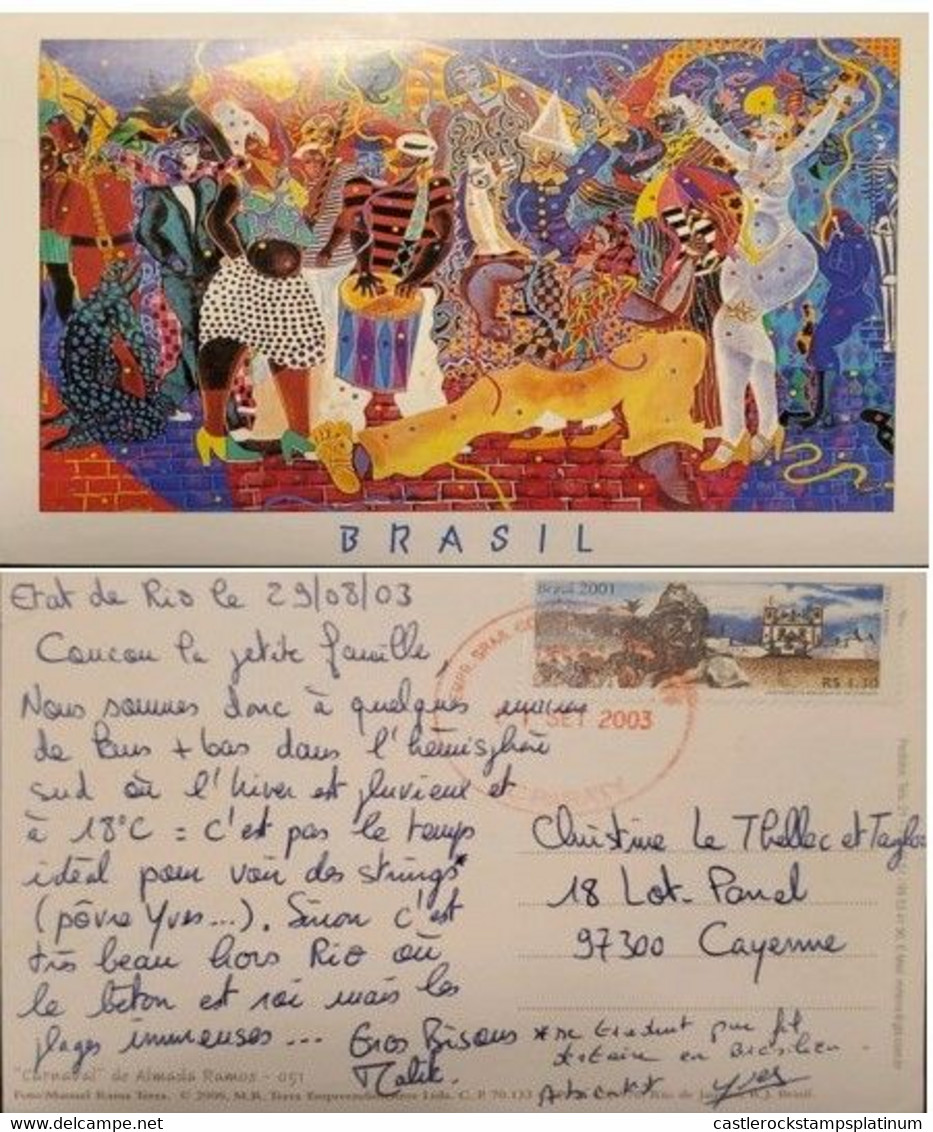 BRASIL
Etat de Rio le 29/08/03
Coucou la petite famille
Nous sommes donc à quelques
de + bas dans l'hémisphère
sud où l'hiver est pluvieux et
à 18°C = c'est pas le temps
idéal pour voir des strings*
(pôvre Yves...). Sinon c'est
très beau hors Rio où
le béton est roi mais les
plages immenses... Gros Bisous
Malik.
Brasil 2001
R$ 1,30
SET 2003
Christine Le Thellec et
18 Lot. Panel
97300 Cayenne
*se traduit par fil
dentaire en Brésilien
Yves
"Carnaval" de Almada Ramos - 051
Foto: Manuel Rama Terra. © 2000, M.R. Terra Ltda. C. P. 70.133
castlerockstampsplatinum